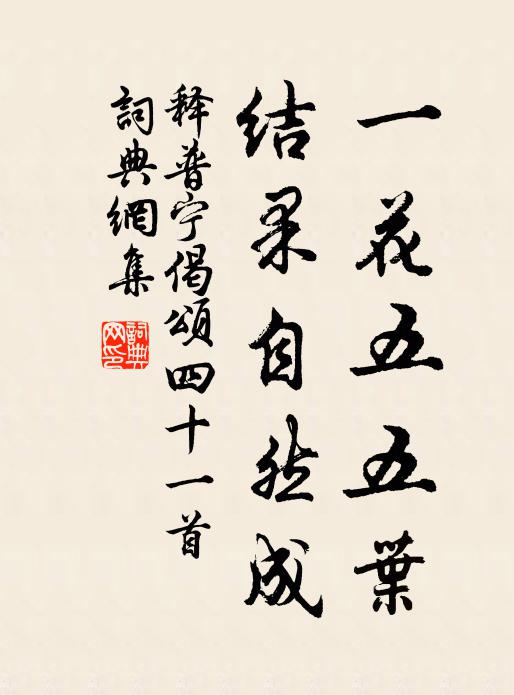 一花五五葉
结果自然成
释普宁偈頌四十一首
詞典網集
詞典网印